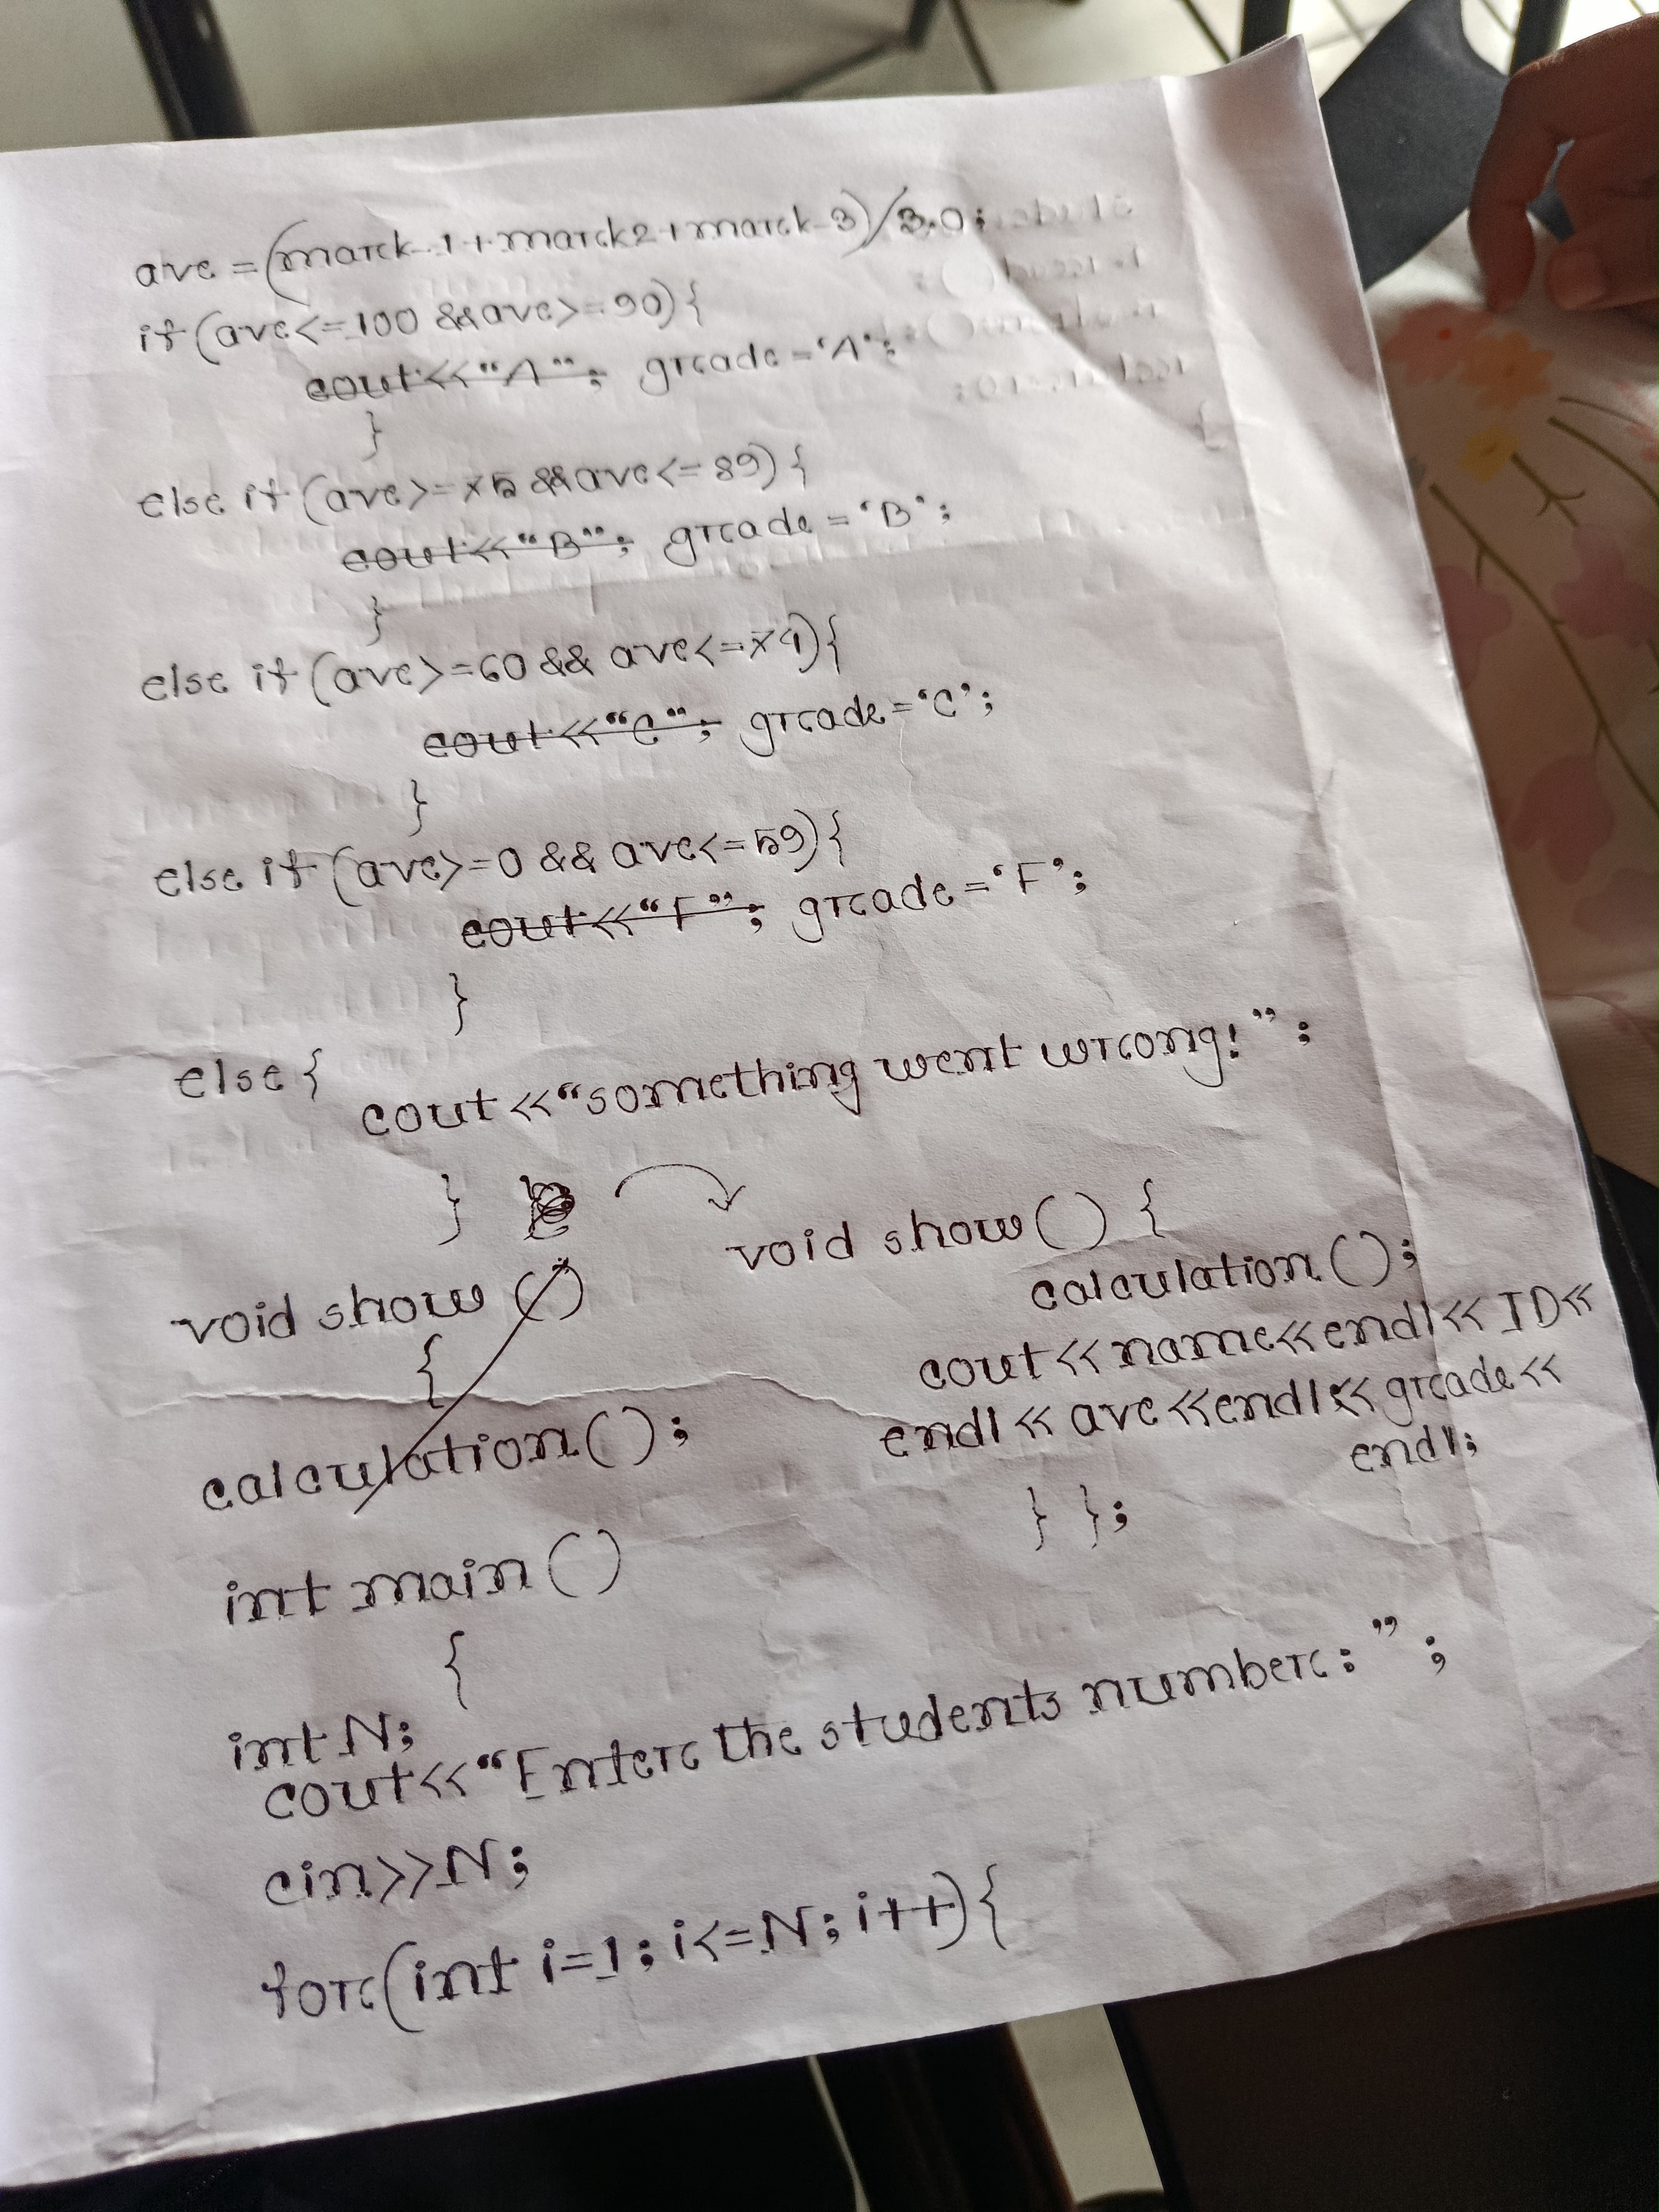 ave = (mark_1 + mark2 + mark_3)/3.0;
if (ave<=100 && ave>=90){
cout<<"A"; grade = 'A';
}
else if (ave>=75 && ave<=89){
cout<<"B"; grade = 'B';
}
else if (ave>=60 && ave<=74){
cout<<"C"; grade='C';
}
else if (ave>=0 && ave<=59){
cout<<"F"; grade='F';
}
else {
cout<<"something went wrong!";
}
void show ()
{
calculation();
void show() {
calculation();
cout<<name<<endl<<ID<<
endl<<ave<<endl<<grade<<
endl;
} };
int main ()
{
int N;
cout<<"Enter the students number: ";
cin>>N;
for(int i=1; i<=N; i++){